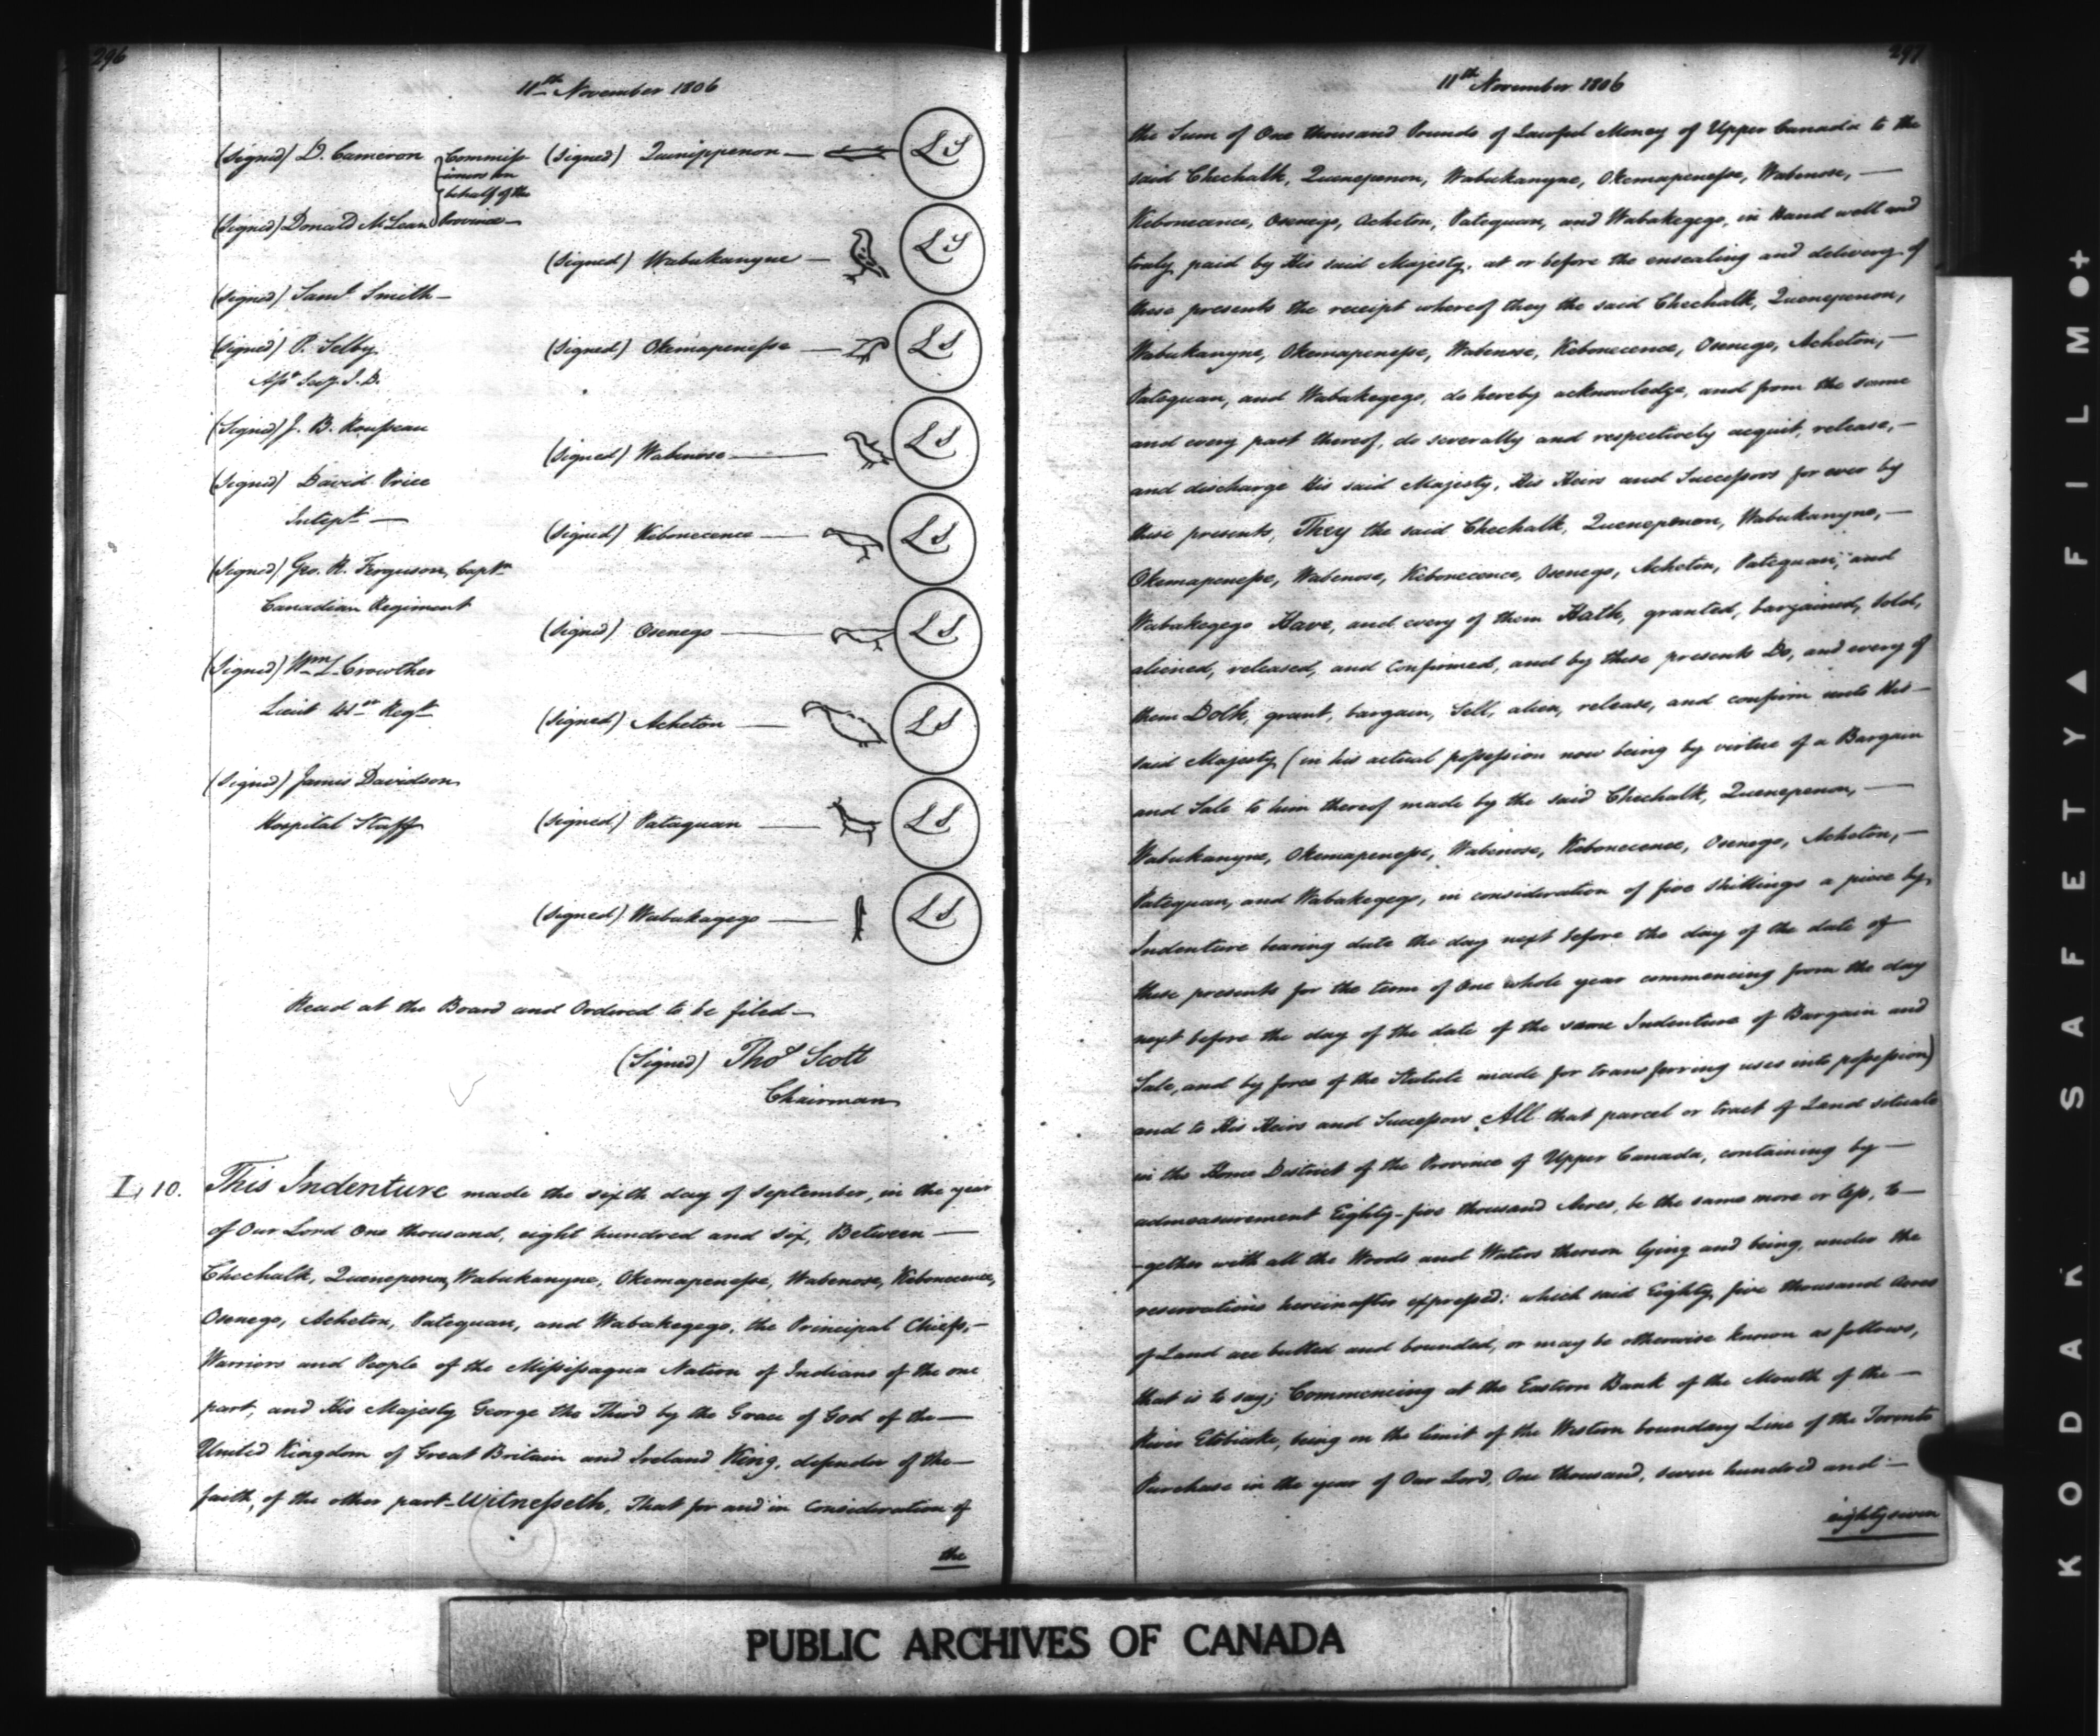 296
11th November 1806
(Signed) D. Cameron
(Signed) Donald McLean
Commiss
ioners on
behalf of the
Province
(Signed) Saml Smith
(Signed) P. Selby
Asst Secy. I. D.
(Signed) J. B. Rousseau
(Signed) David Price
Intept
(Signed) Geo. R. Ferguson, Captn
Canadian Regiment
(Signed) Wm L. Crowther
Lieut 41st Regt
(Signed) James Davidson
Hospital Staff
(Signed) Quinippenon LS
(Signed) Wabukanyne LS
(Signed) Okemapenesse LS
(Signed) Wabenose LS
(Signed) Kebonecence LS
(Signed) Osenego LS
(Signed) Acheton LS
(Signed) Pataquan LS
(Signed) Wabakagego LS
Read at the Board and Ordered to be filed
(Signed) Thos Scott
Chairman
L, 10. This Indenture made the sixth day of September, in the year
of Our Lord One thousand, eight hundred and six, Between
Chechalk, Queneperon, Wabukanyne, Okemapenesse, Wabenose, Kebonecence,
Osenego, Acheton, Patequan, and Wabakegego, the Principal Chiefs,
Warriors and People of the Missisagua Nation of Indians of the one
part, and His Majesty George the Third by the Grace of God of the
United Kingdom of Great Britain and Ireland King, defender of the
faith, of the other part Witnesseth, That for and in Consideration of
the
297
11th November 1806
the Sum of One thousand Pounds of Lawful Money of Upper Canada to the
said Chechalk, Quenepenon, Wabukanyne, Okemapenesse, Wabenose,
Kebonecence, Osenego, Acheton, Patequan, and Wabakegego, in Hand well and
truly paid by His said Majesty, at or before the ensealing and delivery of
these presents the receipt whereof they the said Chechalk, Quenepenon,
Wabukanyne, Okemapenesse, Wabenose, Kebonecence, Osenego, Acheton,
Patequan, and Wabakegego, do hereby acknowledge, and from the same
and every part thereof, do severally and respectively acquit, release,
and discharge His said Majesty, His Heirs and Successors for ever by
these presents, They the said Chechalk, Quenepenon, Wabukanyne,
Okemapenesse, Wabenose, Kebonecence, Osenego, Acheton, Patequan, and
Wabakegego Have, and every of them Hath, granted, bargained, sold,
aliened, released, and confirmed, and by these presents Do, and every of
them Doth, grant, bargain, Sell, alien, release, and confirm unto His
said Majesty (in his actual possession now being by virtue of a Bargain
and Sale to him thereof made by the said Chechalk, Quenepenon,
Wabukanyne, Okemapenesse, Wabenose, Kebonecence, Osenego, Acheton,
Patequan, and Wabakegego, in consideration of five Shillings a piece by
Indenture bearing date the day next before the day of the date of
these presents for the term of One whole year commencing from the day
next before the day of the date of the same Indenture of Bargain and
Sale, and by force of the Statute made for transferring uses into possession)
and to His Heirs and Successors All that parcel or tract of Land situate
in the Home District of the Province of Upper Canada, containing by
admeasurement Eighty-five thousand Acres, be the same more or less, to
-gether with all the Woods and Waters thereon lying and being, under the
reservations hereinafter expressed: which said Eighty, five thousand Acres
of Land are butted and bounded, or may be otherwise known as follows,
that is to say; Commencing at the Eastern Bank of the Mouth of the
River Etobicoke, being on the limit of the Western boundary Line of the Toronto
Purchase in the year of Our Lord, One thousand, seven hundred and
eighty seven
PUBLIC ARCHIVES OF CANADA
KODAK SAFETY FILM